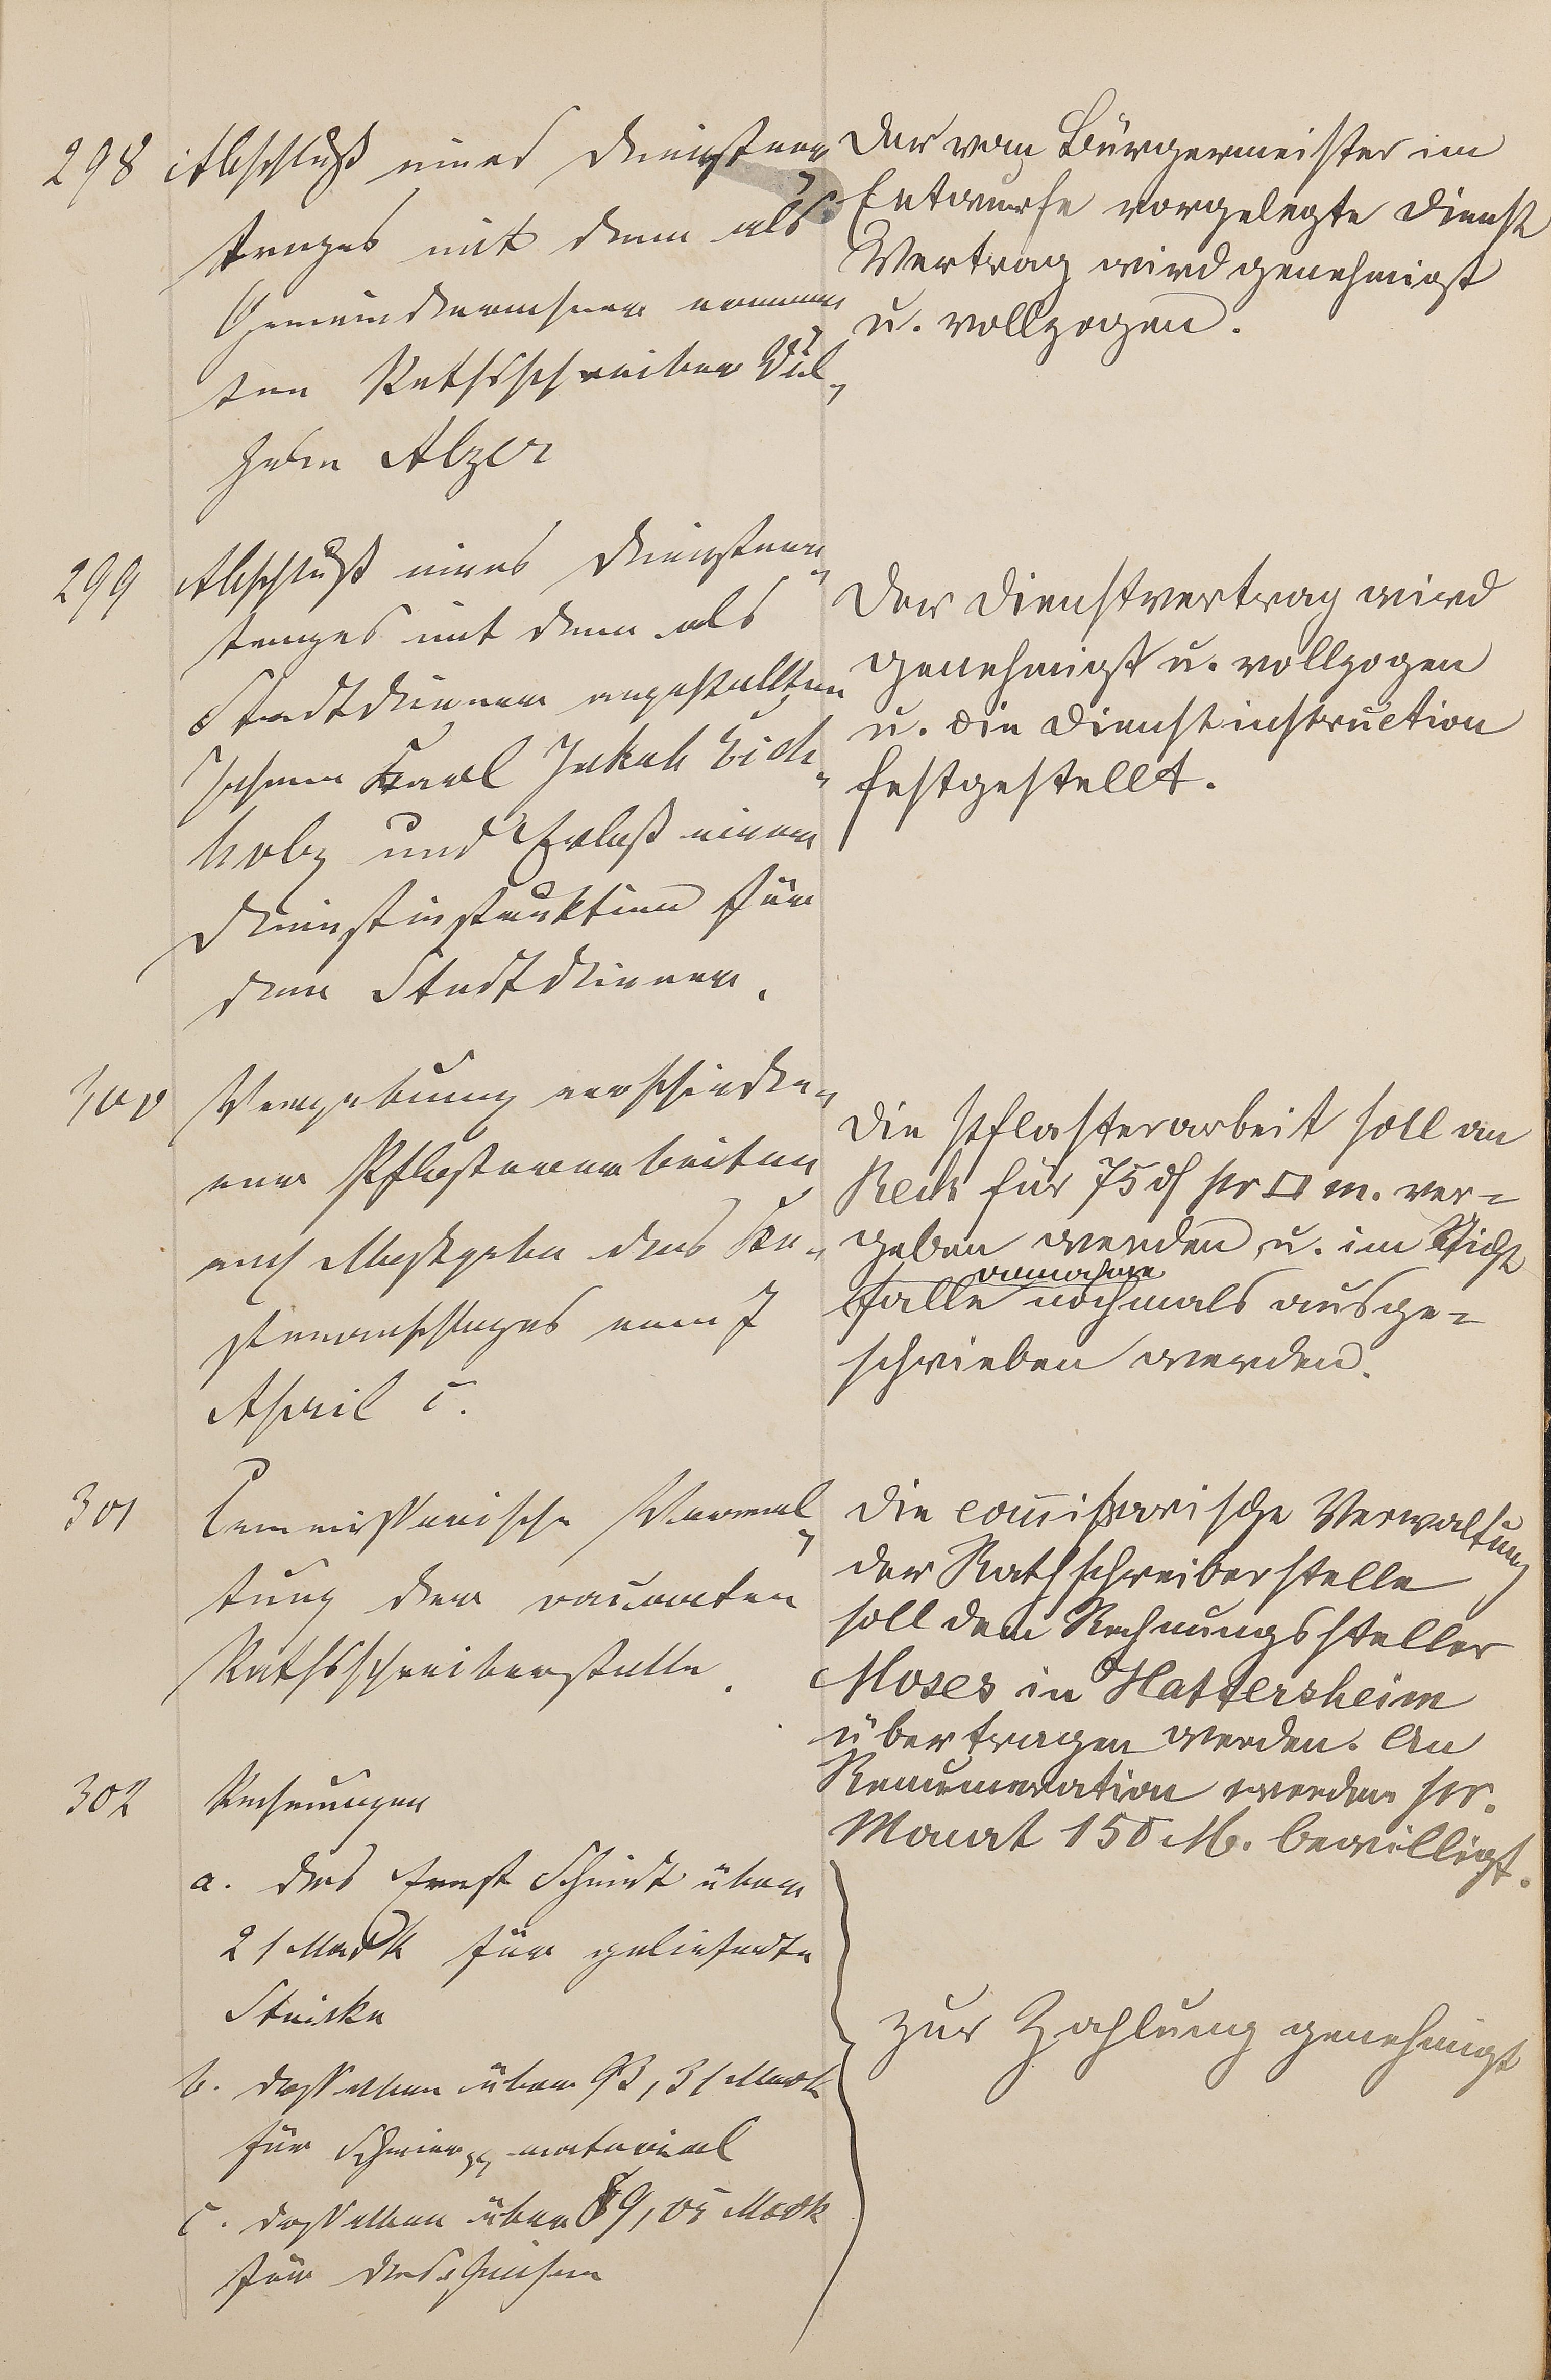 298 Abschluß eines Dienstver-
trages mit dem als
Gemeinderechner ernann-
ten Rathsschreiber Wil-
helm Abzer
Der vom Bürgermeister im
Entwurfe vorgelegte Dienst
Vertrag wird genehmigt
u. vollzogen.
299 Abschluß eines Dienstver-
trages mit dem als
Stadtdiener angestellten
Johann Karl Jakob Eich-
holz und Erlaß einer
Dienstinstruktion für
den Stadtdiener.
Der Dienstvertrag wird
genehmigt u. vollzogen
u. die Dienstinstruction
festgestellt.
300 Vergebung verschiede-
ner Pflasterarbeiten
nach Maßgabe des Ko-
stenanschlages vom 7
April c.
Die Pflasterarbeit soll an
Reck für 75 ₰ pr □ m. ver-
geben werden u. im Nicht
annahme
falle nochmals ausge-
schrieben werden.
301 Commissarische Verwal-
tung der vacanten
Rathsschreiberstelle.
Die commissarische Verwaltung
der Rathschreiberstelle
soll dem Rechnungssteller
Moses in Hattersheim
übertragen werden. An
Renumeration werden pr.
Monat 150 M. bewilligt.
302 Rechnungen
a. des Ernst Schmidt über
21 Mark für gelieferte
Stricke
b. desselben über 93,31 Mark
für Schmier material
c. desselben über 89,05 Mark
für desgleichen
zur Zahlung genehmigt